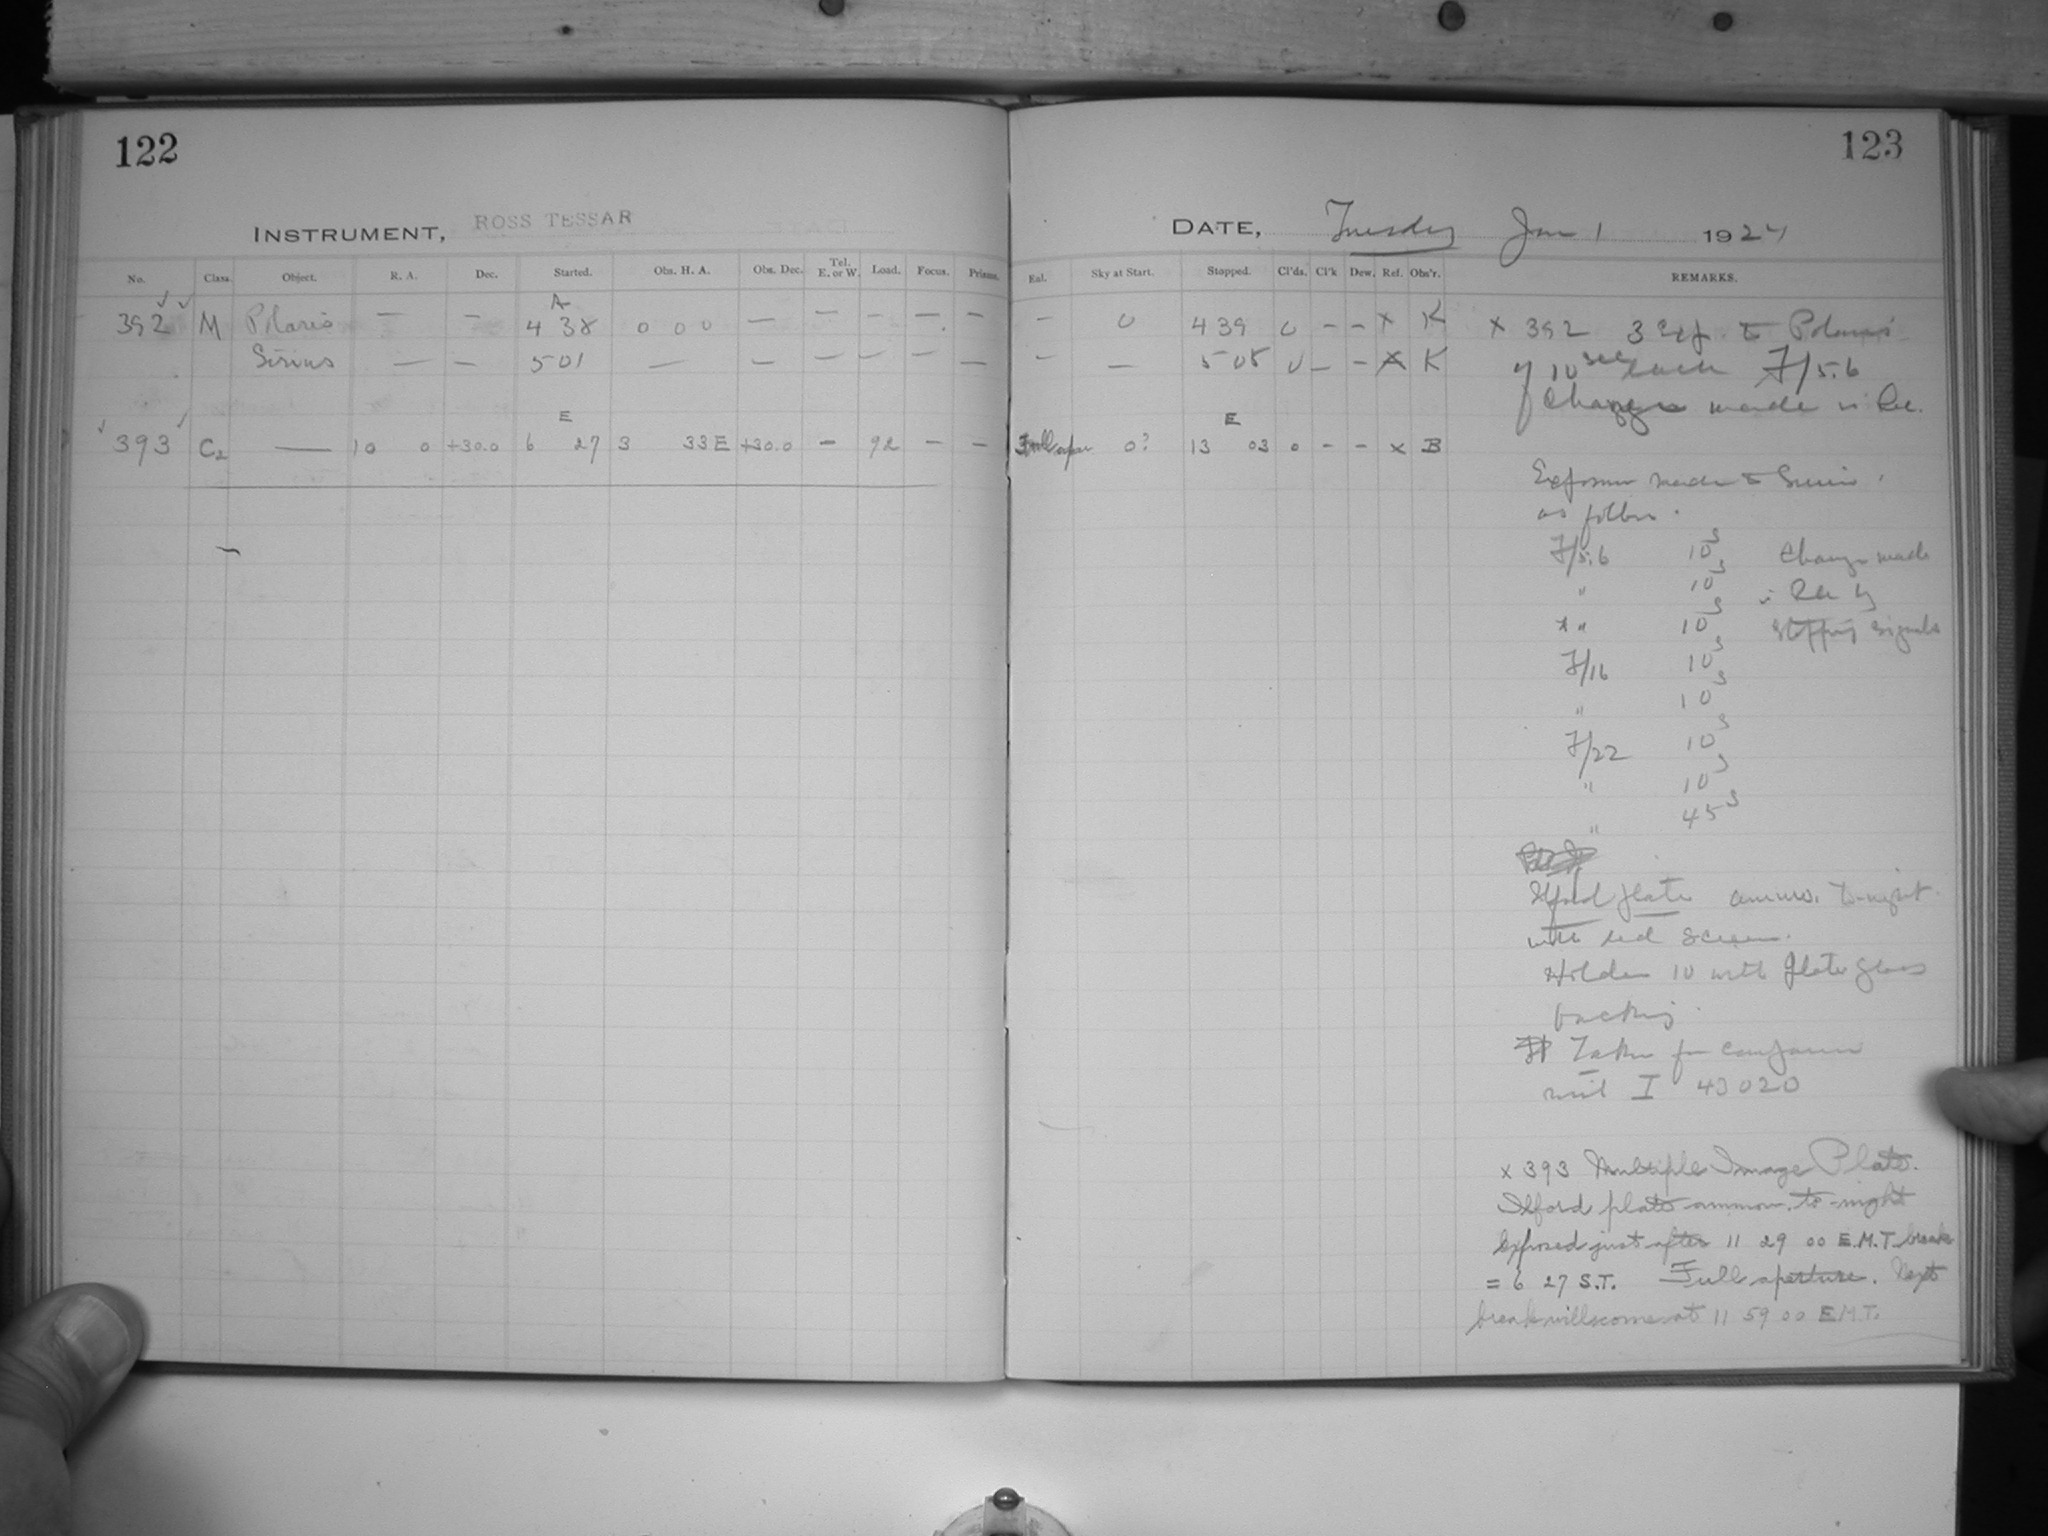 122
INSTRUMENT, ROSS TESSAR
No. Class. Object. R. A. Dec. Started. Obs. H. A. Obs. Dec. Tel. E. or W. Load. Focus. Prisms.
A
392 M Polaris — — 4 38 0 0 0 — — — — —
Sirius — — 501 — — — — — —
E
393 C2 — 10 0 +30.0 6 27 3 33 E +30.0 — 92 — —
123
DATE, Tuesday Jan 1 1924
Eal. Sky at Start. Stopped. Cl'ds. Cl'k Dew. Ref. Obs'r. REMARKS.
— 0 4 39 0 – – x K
— — 5 08 0 – – x K
E
Full aper 0? 13 03 0 – – x B
x 392 3 Exp. to Polaris
of 10 sec each F/5.6
Changes made in Dec.
Exposures made to Sirius
as follows.
F/5.6 10s Change made
" 10s in Dec by
" 10s stopping signals
F/16 10s
" 10s
F/22 10s
" 10s
" 45s
Ilford plate ammo. to-night
with red screen.
Holder 10 with plate glass
backing.
Taken for comparison
with I 43020
x 393 Multiple Image Plate.
Ilford plate ammon. to-night
Exposed just after 11 29 00 E.M.T. break
= 6 27 S.T. Full aperture. Next
break will come at 11 59 00 E.M.T.